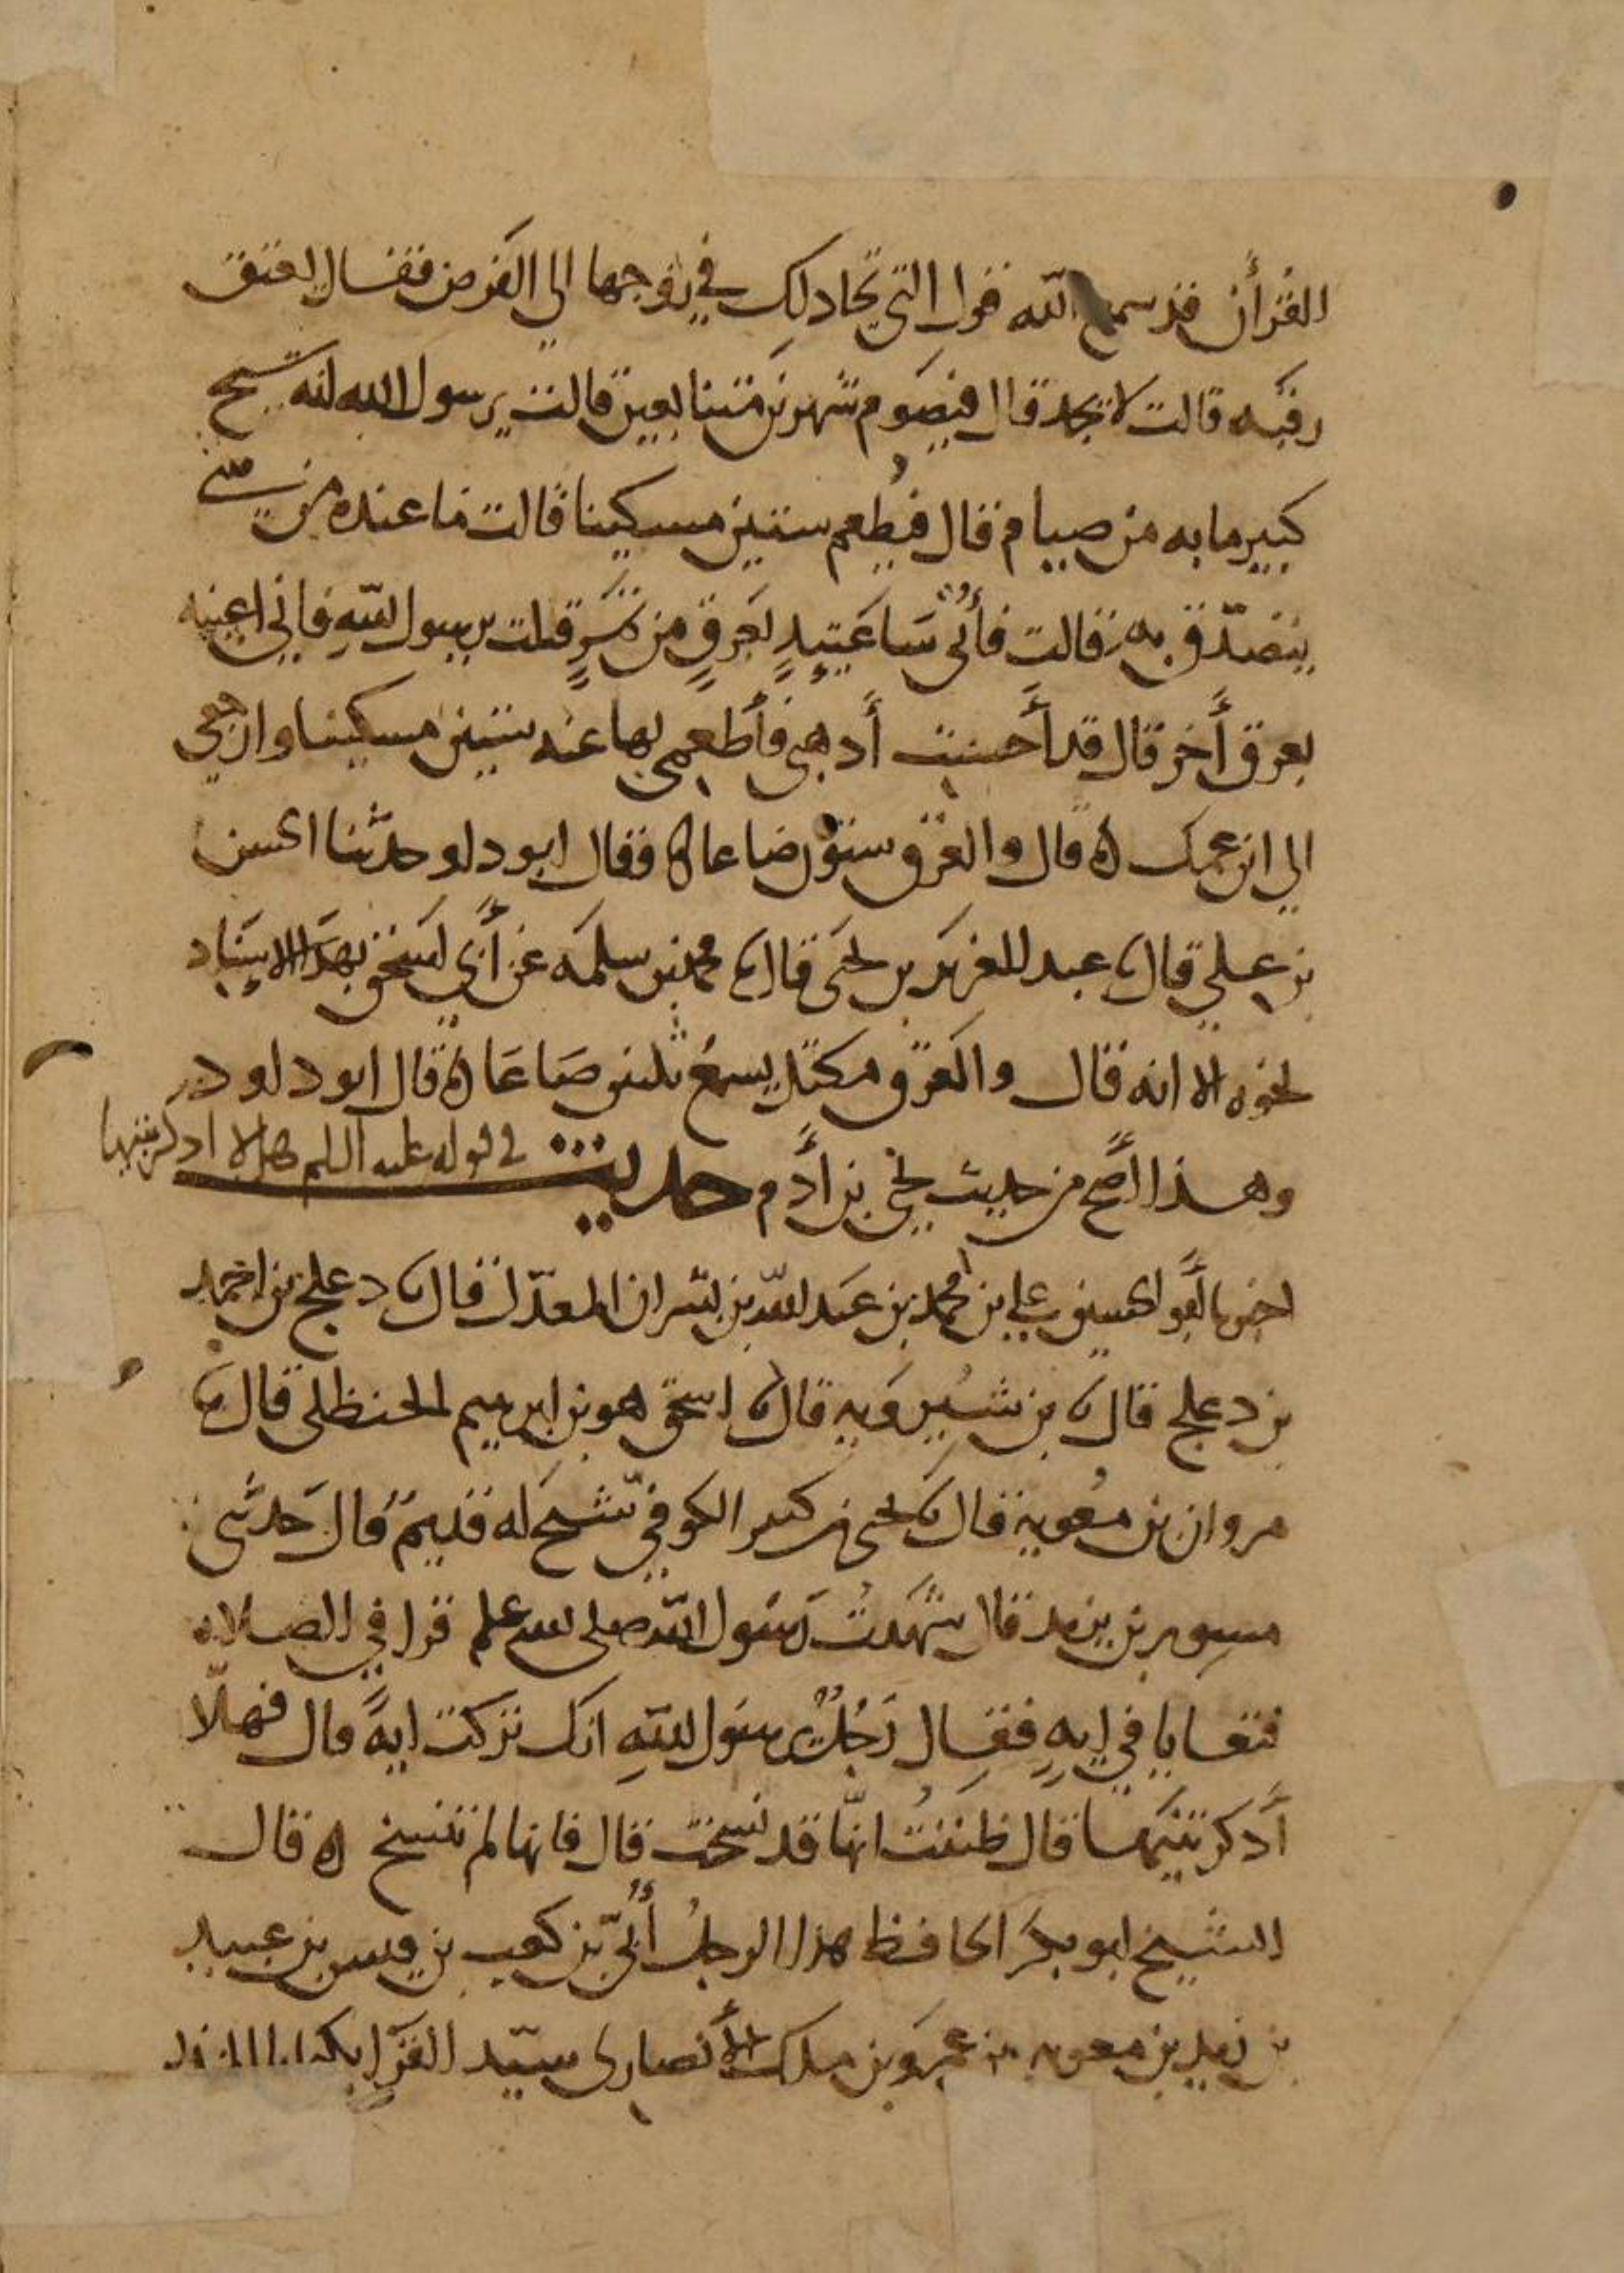 القرأن قد سمع الله قول التي تجادلك في زوجها الى الفرض فقال يعتق
رقبه قالت لا يجد قال فيصوم شهرين متتابعين قالت يرسول الله انه شيخ
كبير ما به من صيام قال فيطعم ستين مسكينا قالت ما عنده من شي
يتصدق به قالت فأتي ساعتيذ بعرق من تمر قلت يرسول الله فاني اعينه
بعرق أخر قال قد أحسنت أذهبي فأطعمي بها عنه ستين مسكينا وارجعي
الي ابن عمك ه قال والعرق ستون صاعا ه فقال ابو داود حدثنا الحسن
بن علي قال عبد العزيز بن يحي قال محمد بن سلمه عن أبي اسحق بهذا الاسناد
نحوه الا انه قال والعرق مكتل يسع ثلثين صاعا ه قال ابو داود
وهذا أصح من حديث يحي بن أدم حديث في قوله عليه السلم هلا اذكرتنيها
اخبرنا أبو الحسين علي بن محمد بن عبد الله بن بشران المعدل قال دعلج بن احمد
بن دعلج قال بن شيرويه قال اسحق هو بن ابرهيم الحنظلي قال
مروان بن معوية قال يحي بن كثير الكوفي شيخ له قديم قال حدثني
مسور بن يزيد قال شهدت رسول الله صلى الله علم قرا في الصلاه
فتعايا في ايه فقال رجل يرسول الله انك تركت اية قال فهلا
أذكرتنيها قال ظننت انها قد نسخت قال فانها لم تنسخ ه قال
الشيخ ابو بكر الحافظ هذا الرجل أبي بن كعب بن قيس بن عبيد
بن زيد بن معويه بن عمرو بن ملك الأنصاري سيد القرا